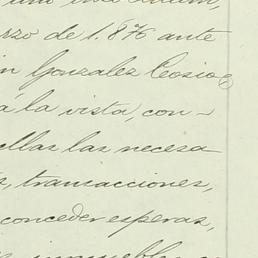 rzo de 1.876 ante
n Gonzalez Cosio
a la vista, con-
ellas las necesa
s, transacciones,
conceder esperas,